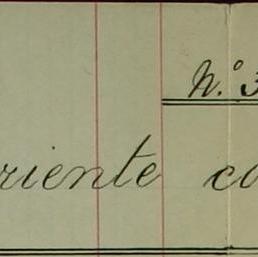 N.º 3
riente co